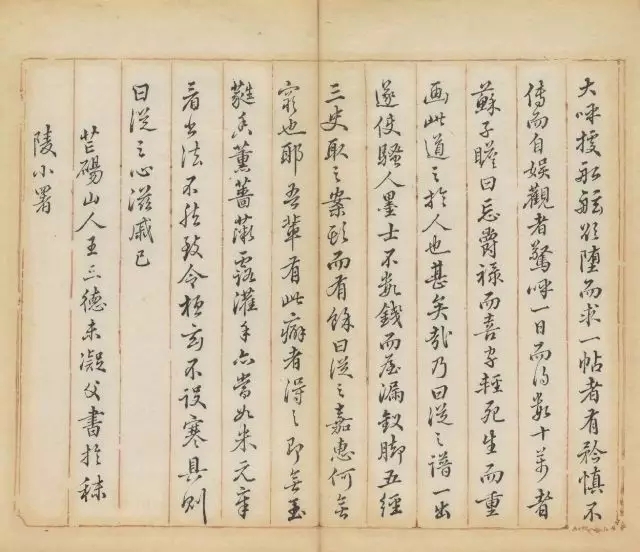 大呼擭船舷欲墮而求一帖者有矜慎不
傳而自娛觀者驚呼一日而得數十萬者
蘇子瞻曰忘爵祿而喜字輕死生而重
画此道之於人也甚矣哉乃曰從之譜一出
遂使騷人墨士不費錢而屋漏釵脚五經
三史取之案頭而有餘曰從之嘉惠何無
窮也耶吾輩有此癖者得之即無玉
蕤香薰薔薇露灌手亦當如米元章
看書法不然致令桓玄不設寒具則
曰從之心滋戚已
芒碭山人王三德未凝父書於秣
陵小署